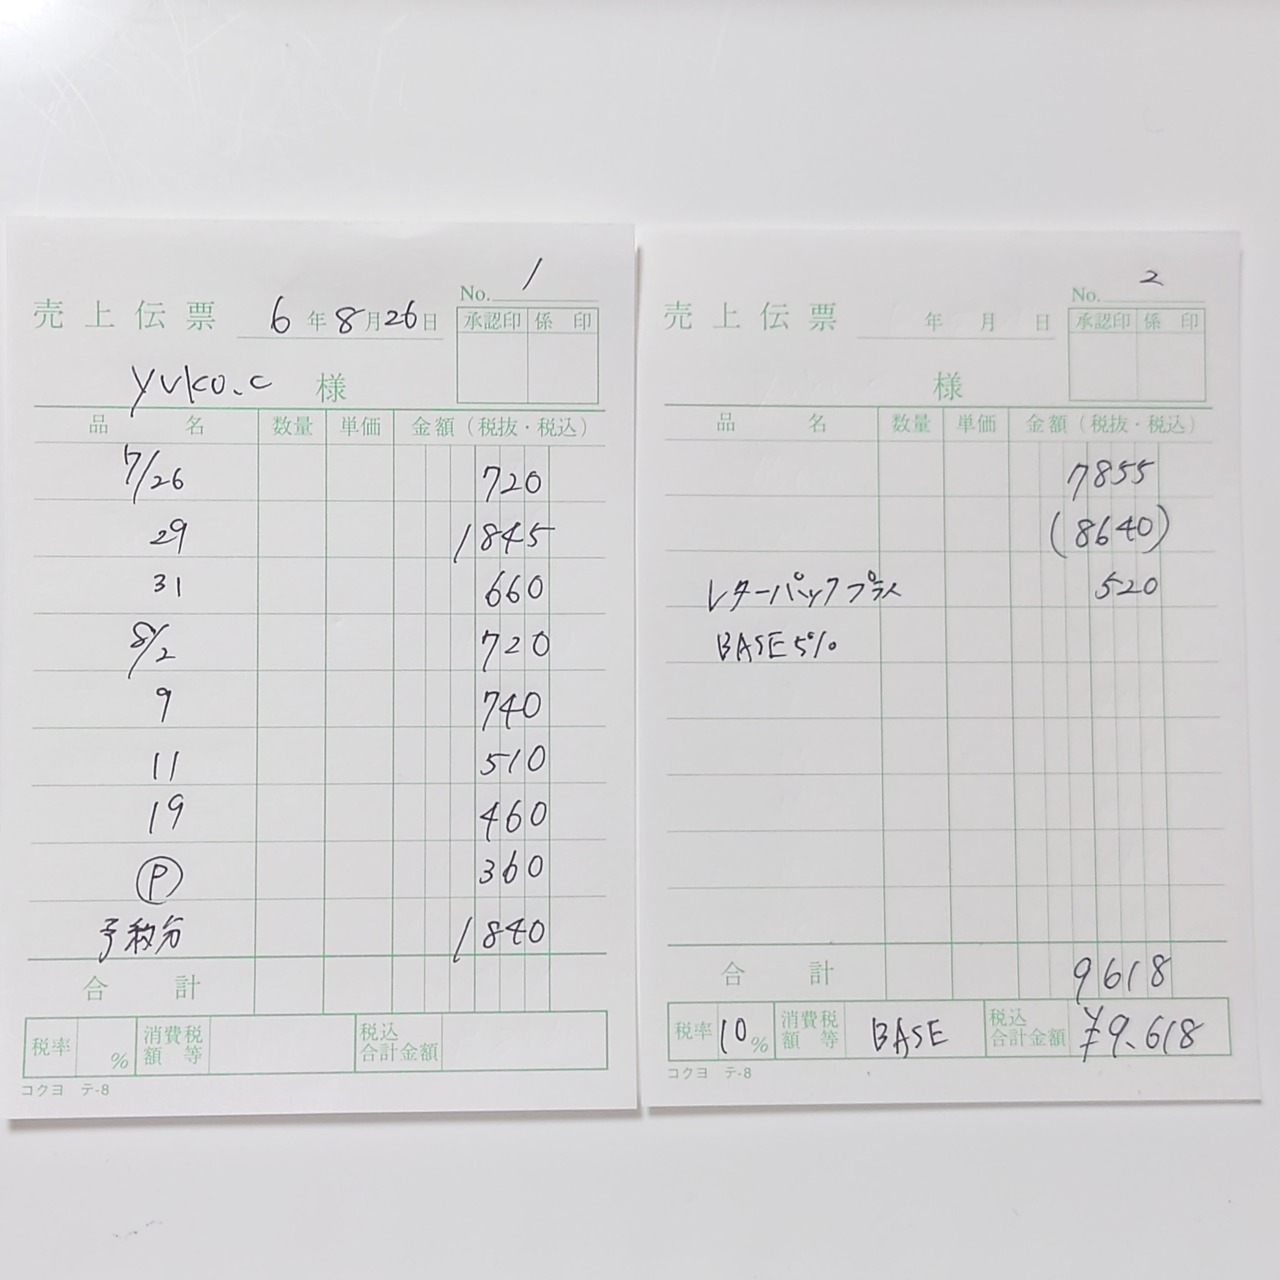 No. 1
売上伝票 6年8月26日
承認印 係印
yuko.c 様
品名 数量 単価 金額（税抜・税込）
7/26 720
29 1845
31 660
8/2 720
9 740
11 510
19 460
Ⓟ 360
予約分 1840
合計
税率 % 消費税額等 税込合計金額
コクヨ テ-8
No. 2
売上伝票 年 月 日
承認印 係印
様
品名 数量 単価 金額（税抜・税込）
7855
(8640)
レターパックプラス 520
BASE 5%
合計 9618
税率 10% 消費税額等 BASE 税込合計金額 ¥9.618
コクヨ テ-8